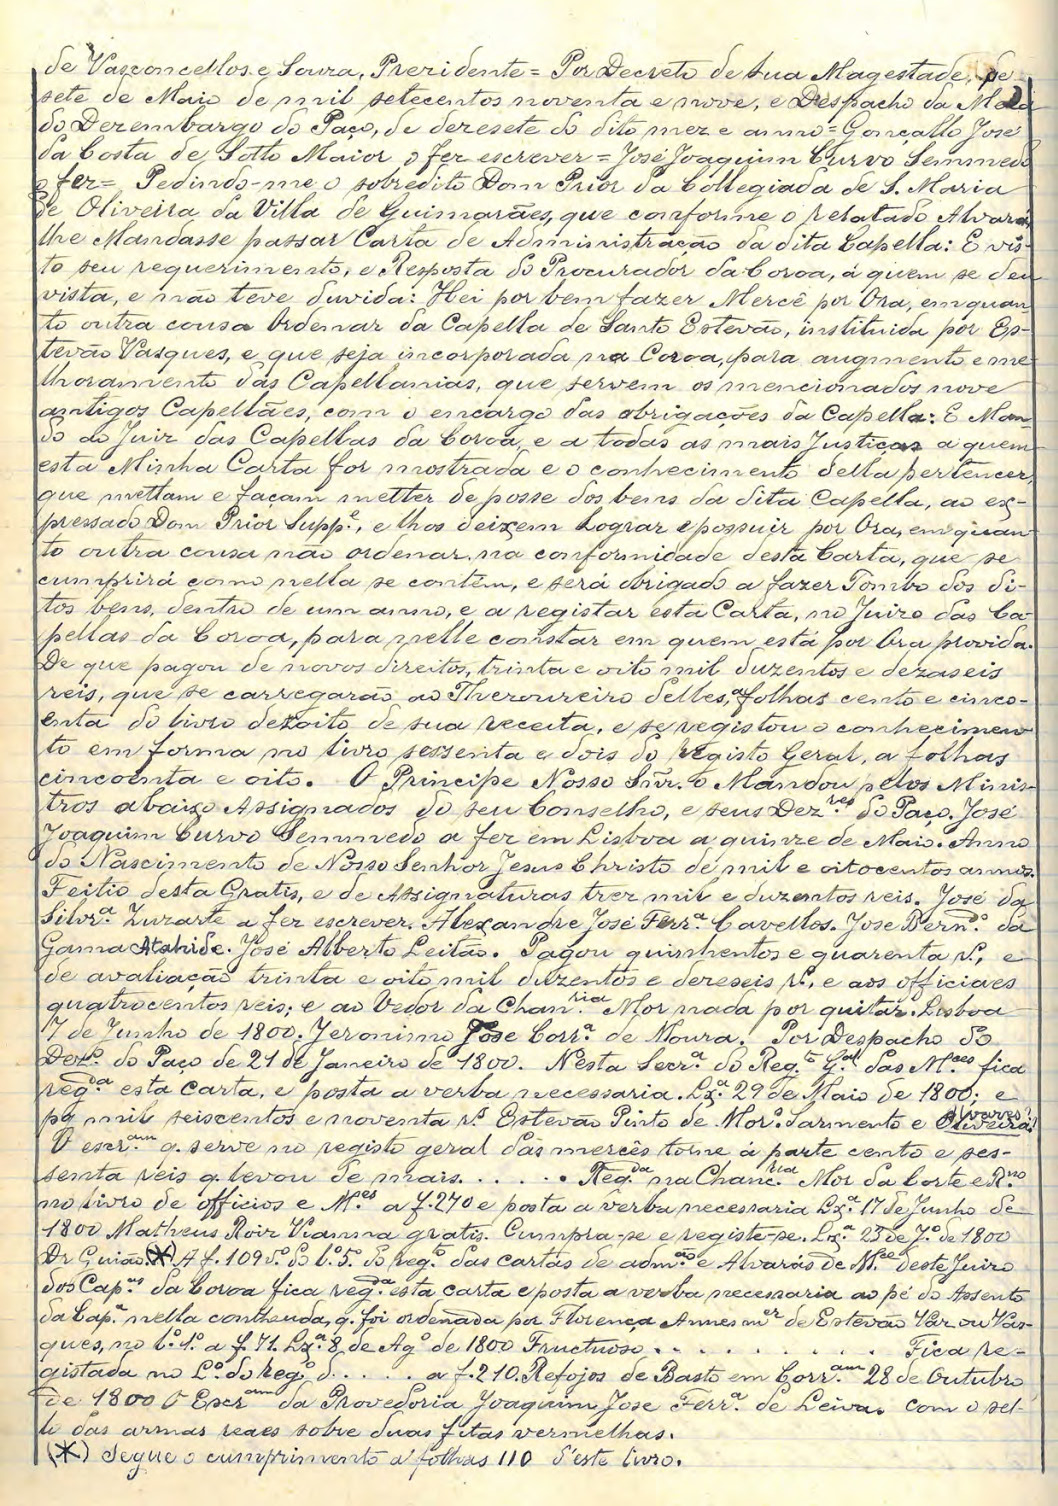 de Vasconcellos e Souza, Prezidente = Por Decreto de Sua Magestade, de
sete de Maio de mil setecentos noventa e nove, e Despacho da Meza
do Dezembargo do Paço, de dezesete do dito mez e anno = Gonçallo José
da Costa de Sotto Maior o fez escrever = José Joaquim Curvo Semmedo
o fez = Pedindo-me o sobredito Dom Prior da Collegiada de S. Maria
de Oliveira da Villa de Guimarães, que conforme o relatado Alvará,
lhe Mandasse passar Carta de Administração da dita Capella: E vis-
to seu requerimento, e Resposta do Procurador da Coroa, á quem se deu
vista, e não teve duvida: Hei por bem fazer Mercê por Ora, emquan-
to outra cousa Ordenar da Capella de Santo Estevão, instituida por Es-
tevão Vasques, e que seja incorporada na Coroa, para augmento e me-
lhoramento das Capellanias, que servem os mencionados nove
antigos Capellães, com o encargo das obrigações da Capella: E Man-
do ao Juiz das Capellas da Coroa, e a todas as mais Justiças a quem
esta Minha Carta for mostrada e o conhecimento della pertencer,
que mettam e façam metter de posse dos bens da dita Capella, ao ex-
pressado Dom Prior Supp.e, e lhos deixem lograr e possuir por Ora, em quan-
to outra cousa não ordenar, na conformidade desta Carta, que se
cumprirá como nella se contêm, e será obrigado a fazer Tombo dos di-
tos bens, dentro de um anno, e a registar esta Carta, no Juizo das Ca-
pellas da Coroa, para nelle constar em quem está por Ora provida.
De que pagou de novos direitos, trinta e oito mil duzentos e dezaseis
reis, que se carregarão ao Thezoureiro delles, a folhas cento e cinco-
enta do livro dezoito de sua receita, e se registou o conhecimen-
to em forma no livro sessenta e dois do registo Geral, a folhas
cincoenta e oito. O Principe Nosso Snr. o Mandou pelos Minis-
tros abaixo Assignados do seu Conselho, e seus Dez.res do Paço. José
Joaquim Curvo Semmedo a fez em Lisboa a quinze de Maio. Anno
do Nascimento de Nosso Senhor Jesus Christo de mil e oitocentos annos.
Feitio desta Gratis, e de Assignaturas trez mil e duzentos reis. José da
Silvr.a Zuzarte a fez escrever. Alexandre José Ferr.a Cavellos. Jose Bern.do da
Gama Atahide. José Alberto Leitão. Pagou quinhentos e quarenta r.s, e
de avaliação trinta e oito mil duzentos e dezeseis r.s, e aos officiaes
quatrocentos reis; e ao Vedor da Chan.ria Mor nada por quitar. Lisboa
7 de Junho de 1800. Jeronimo Jose Corr.a de Moura. Por Despacho do
Dez.o do Paço de 21 de Janeiro de 1800. Nesta Secr.a do Reg.to G.al das M.ces fica
reg.da esta carta, e posta a verba necessaria. Lx.a 29 de Maio de 1800; e
pg mil seiscentos e noventa r.s Estevão Pinto de Mor.s Sarmento e Oliveira.
O escr.am q. serve no registo geral das mercês torne á parte cento e ses-
senta reis q. levou de mais. . . . . . Reg.da na Chanc.ria Mor da Corte e R.no
no livro de officios e M.ces a f. 270 e posta a verba necessaria Lx.a 17 de Junho de
1800 Matheus Roiz Vianna gratis. Cumpra-se e registe-se. Lx.a 23 de J.o de 1800
Dr Guião. (*) A f. 109 v. do L.o 5. do reg.to das cartas de adm.ão e Alvarás de M.ce deste Juizo
dos Cap.as da Coroa fica reg.da esta carta e posta a verba necessaria ao pé do Assento
da Cap.a nella contheuda, q. foi ordenada por Florença Annes m.er de Estevão Vaz ou Vas-
ques, no L.o 1.o a f. 71. Lx.a 8 de Ag.o de 1800 Fructuoso . . . . . . . . . . Fica re-
gistada no L.o do Reg.o d. . . . . a f. 210. Refojos de Basto em Corr.am 28 de Outubro
de 1800 O Escr.am da Provedoria Joaquim Jose Ferr.a de Leiva. com o sel-
lo das armas reaes sobre duas fitas vermelhas.
(*) Segue o cumprimento a folhas 110 d'este livro.